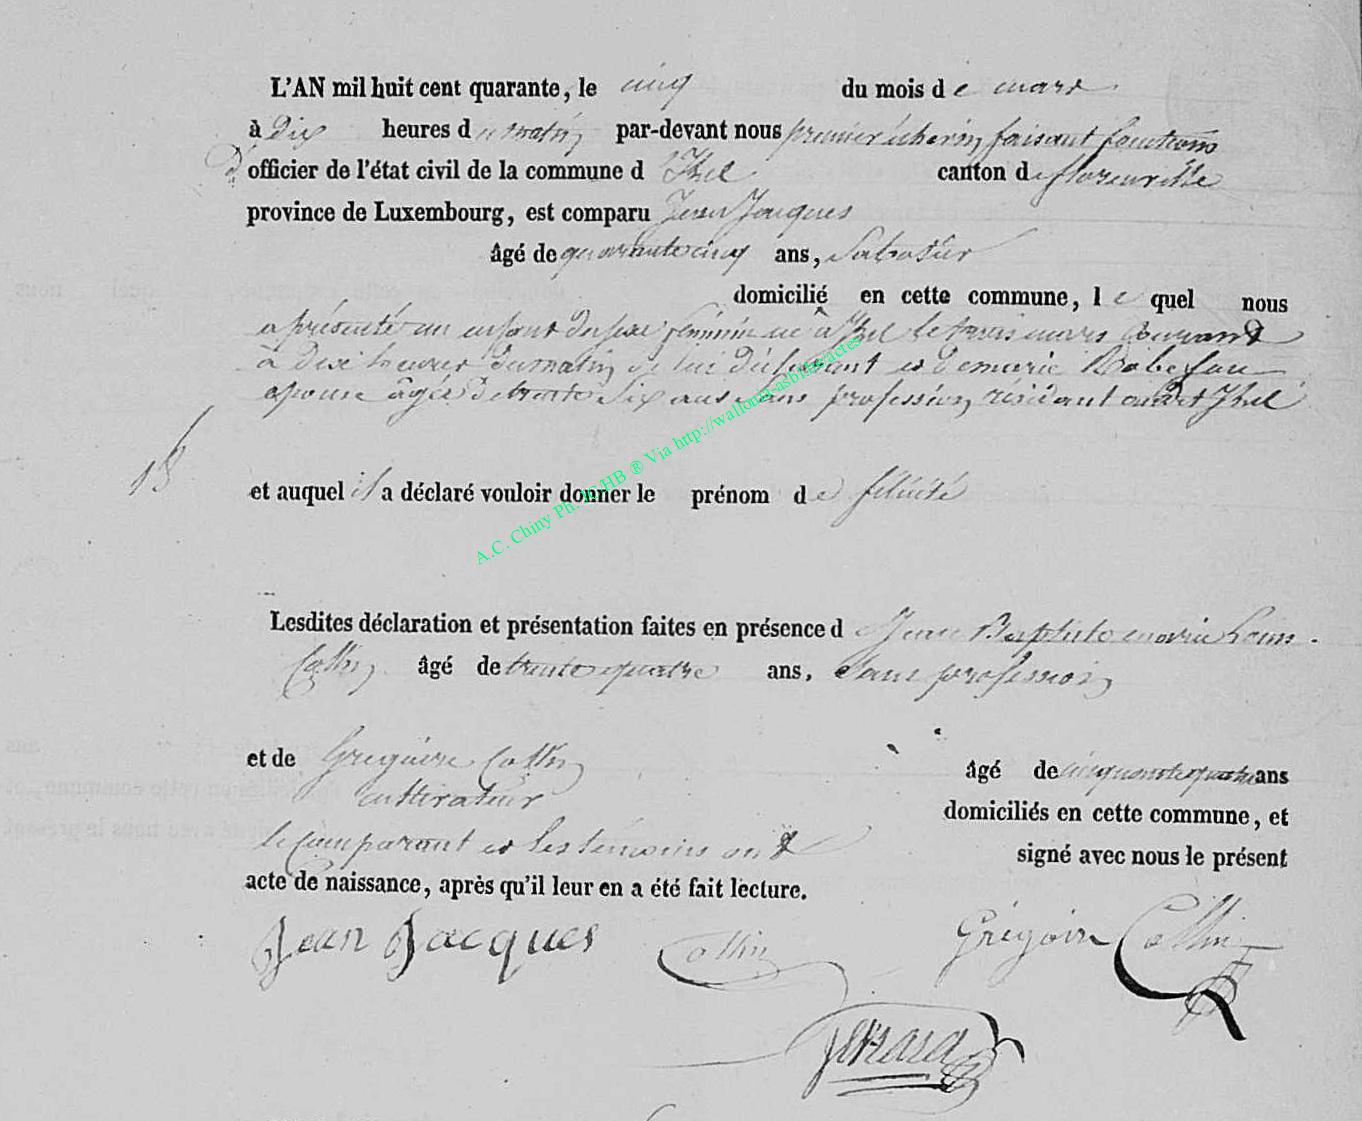 L'AN mil huit cent quarante, le cinq du mois de mars
à Dix heures du matin par-devant nous premier échevin faisant fonctions
d' officier de l'état civil de la commune d'Izel canton de florenville
province de Luxembourg, est comparu Jean Jacques
âgé de quarante cinq ans, Sabotier
domicilié en cette commune, le quel nous
a présenté un enfant du sexe féminin né à Izel le trois mars courant
à dix heures du matin de lui déclarant et de marie
épouse âgée de trente six ans sans profession, résidant audit Izel
18
et auquel il a déclaré vouloir donner le prénom de félicité
Lesdites déclaration et présentation faites en présence de Jean Baptiste marie Louis
Collin âgé de trente quatre ans, sans profession
et de Grégoire Collin âgé de cinquante quatre ans
cultivateur domiciliés en cette commune, et
le comparant et les témoins ont signé avec nous le présent
acte de naissance, après qu'il leur en a été fait lecture.
Jean Jacques Collin Grégoire Collin
A.C. Chiny Ph. JC.HB ® Via http://wallonia-asbl/les/actes